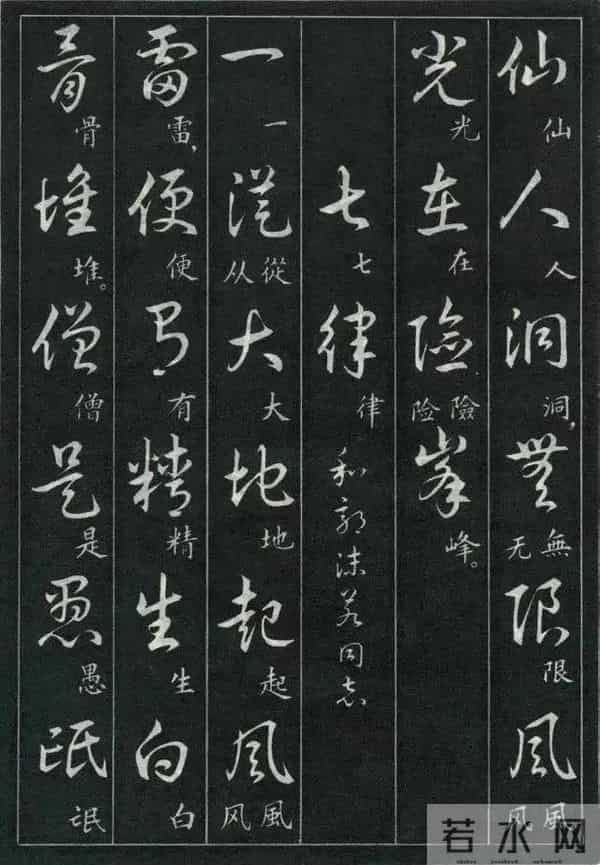 仙人洞無限風
仙人洞，无無限风風
光在險峯
光在险險峰。
七律和郭沫若同志
七律
一從大地起風
一从從大地起风風
雷便有精生白
雷，便有精生白
骨堆僧是愚氓
骨堆。僧是愚氓
若水网